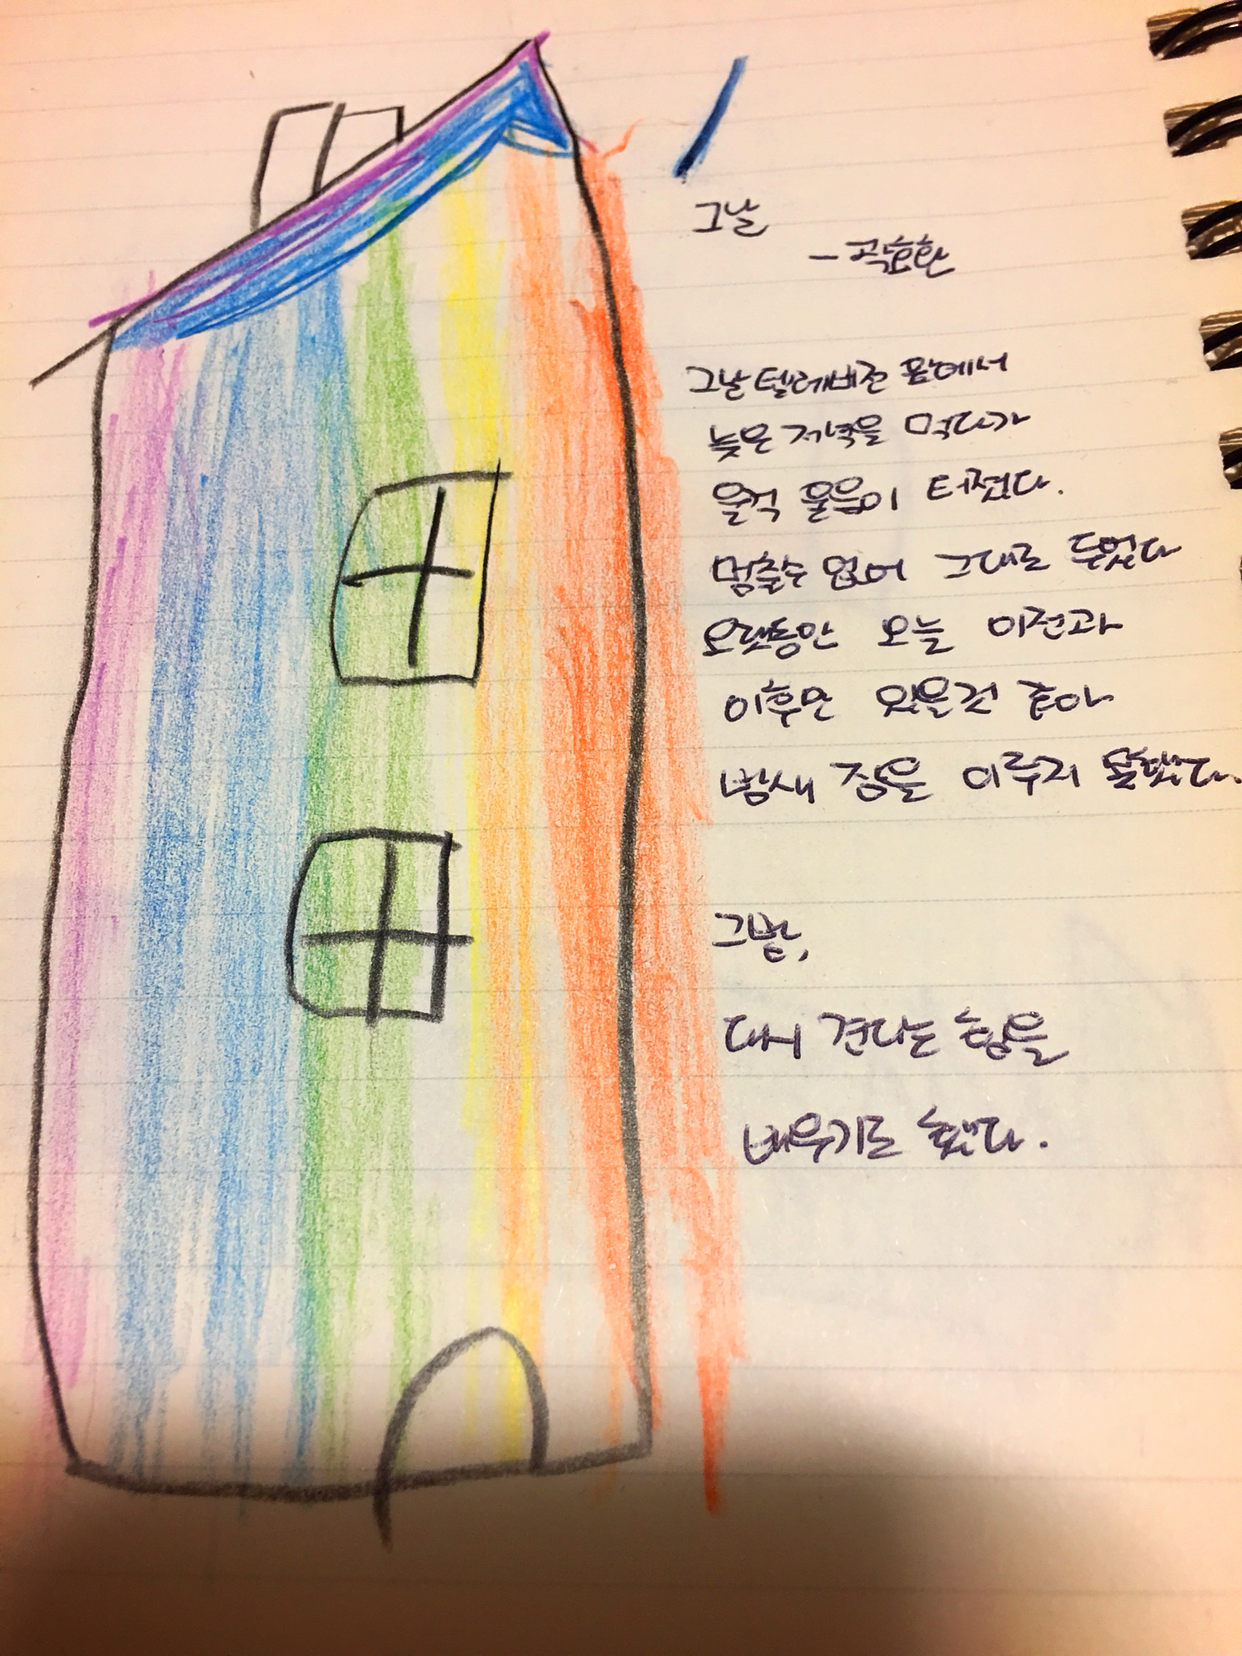 그날
- 곽효환
그날 텔레비전 앞에서
늦은 저녁을 먹다가
울컥 울음이 터졌다.
멈출수 없어 그대로 두었다
오랫동안 오늘 이전과
이후만 있을것 같아
밤새 잠을 이루지 못했다.
그밤,
다시 견디는 힘을
배우기로 했다.